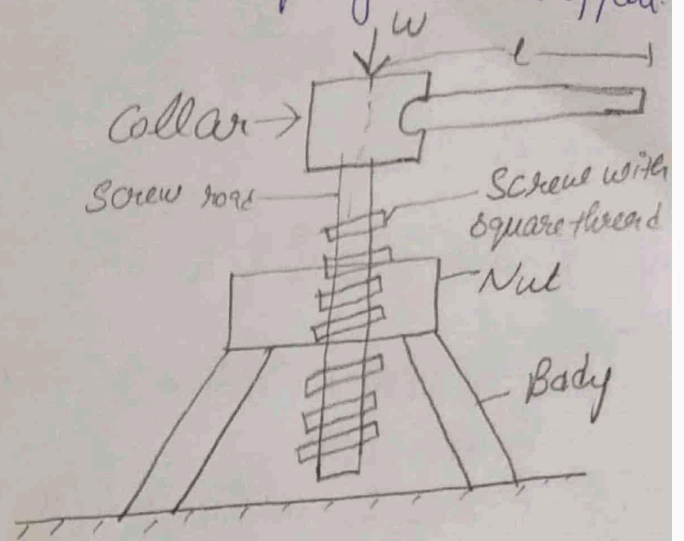 W
l
Collar
Screw road
Screw with
square thread
Nut
Body